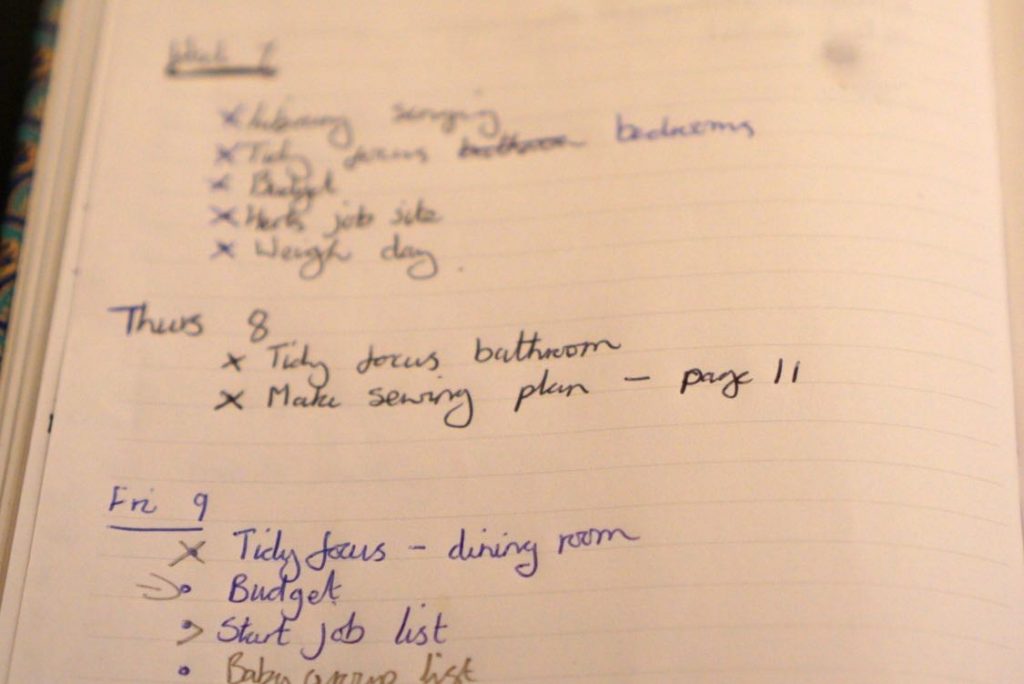 Wed 7
× Library singing
× Tidy focus bathroom bedrooms
× Budget
× Herts job site
× Weigh day.
Thurs 8
× Tidy focus bathroom
× Make sewing plan - page 11
Fri 9
× Tidy focus - dining room
• Budget
> Start job list
• Baby group list